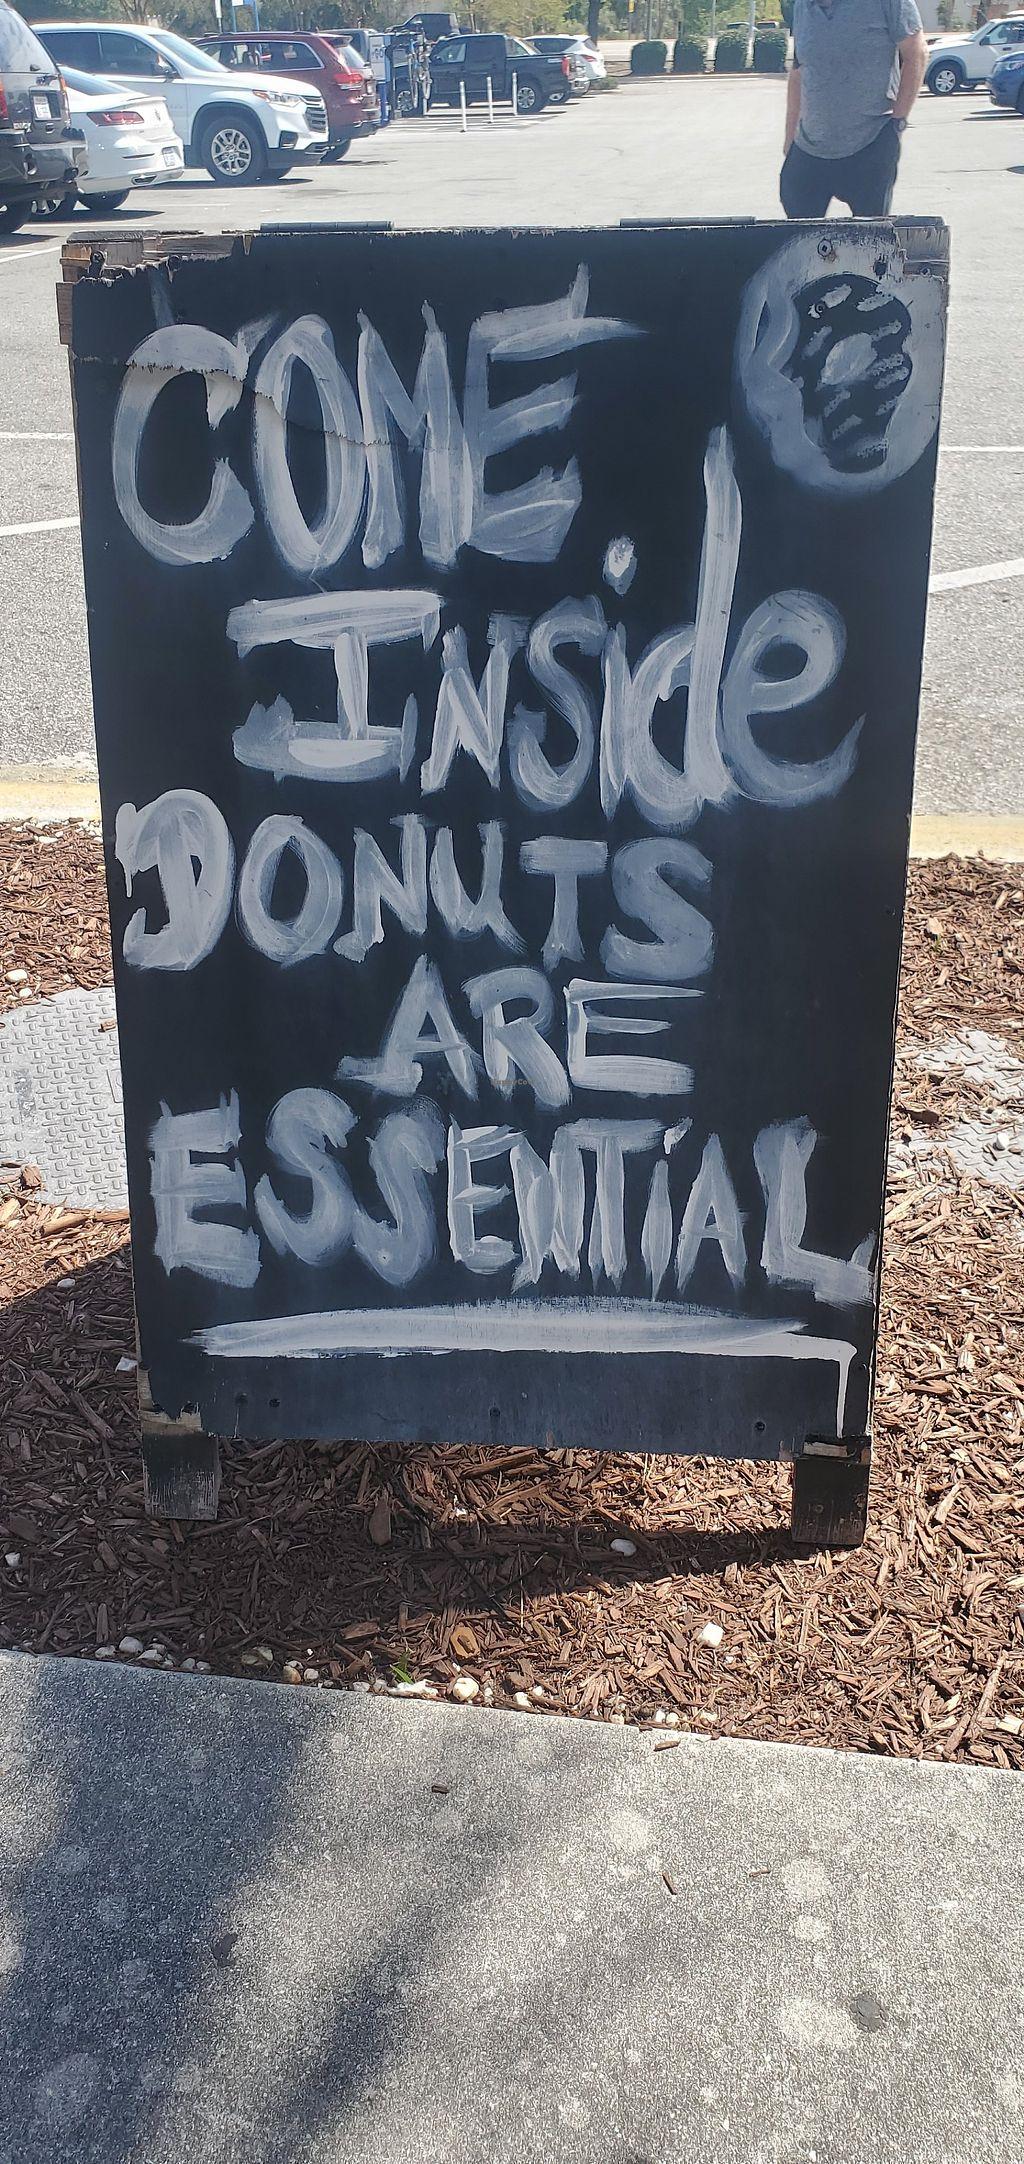 COME
INSide
DONUTS
ARE
ESSENTiAL